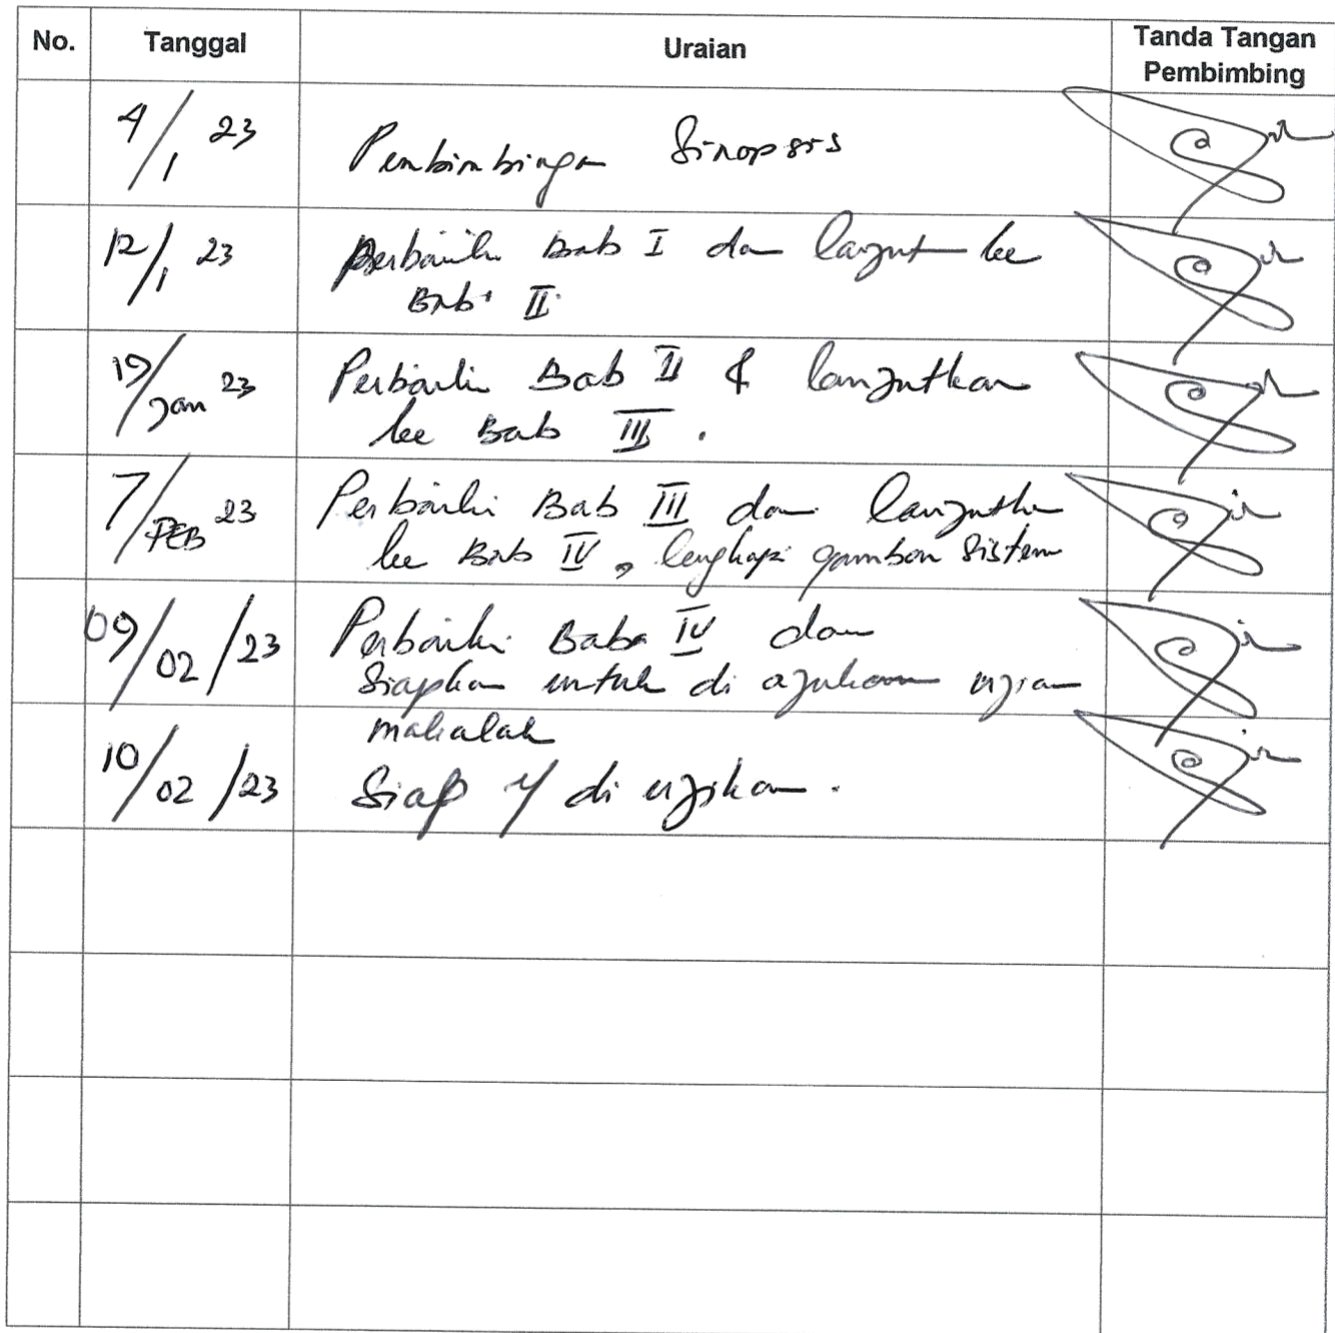 No. Tanggal Uraian Tanda Tangan
Pembimbing
4/1 23 Pembimbingan Sinopsis
12/1 23 Perbaiki Bab I dan lanjut ke
Bab II
19/Jan 23 Perbaiki Bab II & lanjutkan
ke Bab III.
7/FEB 23 Perbaiki Bab III dan lanjutkan
ke Bab IV, lengkapi gambar sistem
09/02/23 Perbaiki Bab IV dan
Siapkan untuk di ajukan ujian
makalah
10/02/23 Siap y di ujikan.